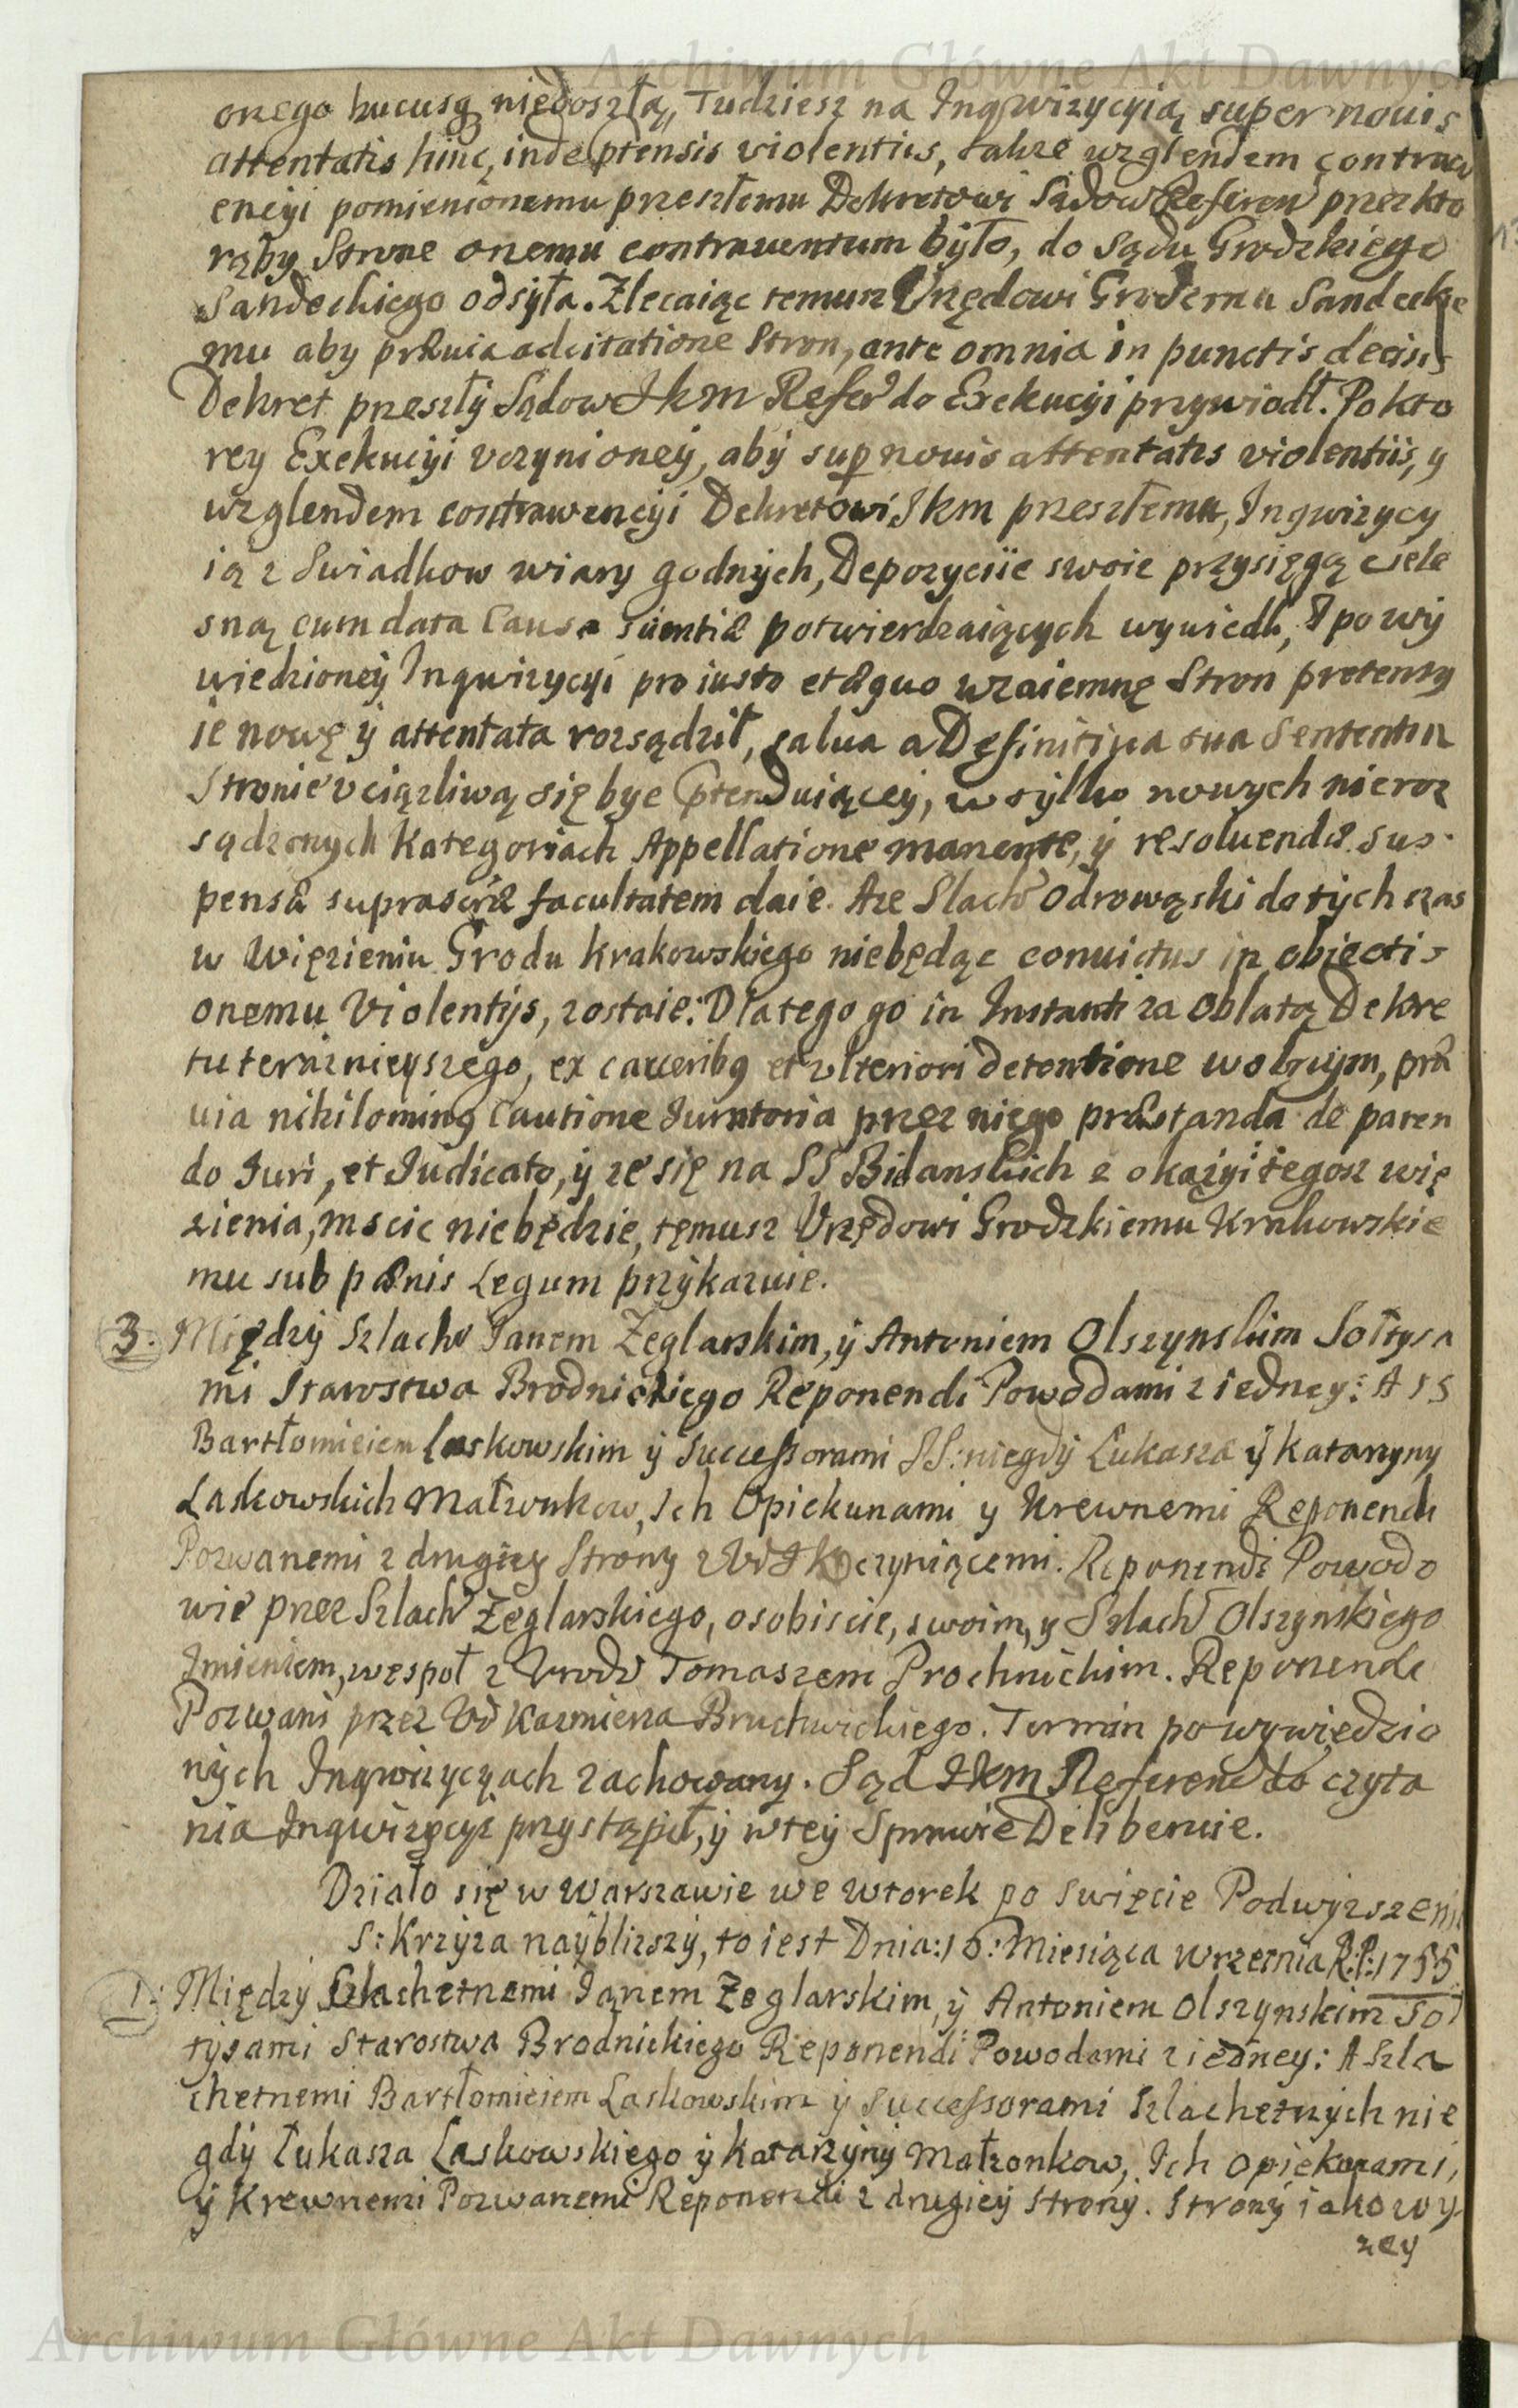 Archiwum Główne Akt Dawnych
onego hucusq niedoszłą, Tudziesz na Inqwizycyią super novis
attentatis hinc, inde ptensis violentiis, także względem contraw
encyi pomienionemu przeszłemu Dekretowi Sądow Referen przez kto
rąby Strone onemu contraventum było, do Sądu Grodzkiego
Sandeckiego odsyła. Zlecaiąc temusz Vrzędowi Grodzmu Sandeckie
mu aby prævia adcitatione Stron, ante omnia in punctis decisis
Dekret przeszły Sądow Jkm Refer do Exekucyi przywiodł. Po kto
rey Exekucyi vczynioney, aby sup novis attentatis violentiis, y
wzglendem contrawencyi Dekretowi Jkm przeszłemu, Inqwizycy
ią z Swiadkow wiary godnych, Depozyciie swoie przysięgą ciele
sną cum data Causa scientiæ potwierdzaiących wywiedł, A po wy
wiedzioney Inqwizycyi pro iusto et æquo wzaiemnę Stron pretensy
ie nowę y attentata rozsądził, salva a Definitiva sua Sententia
Stronie vciązliwą się bye ptenduiącey, w tylko nowych nieroz
sądzonych Kategoriach Appellatione manente, y resoluendæ sus
pensæ suprascriæ facultatem daie. Aze Slach Odrowąski dotych czas
w Więzieniu Grodu Krakowskiego niebędąc convictus in obiectis
onemu Violentijs, zostaie: Dlatego go in Instanti za Oblatą Dekre
tu teraznieyszego, ex carceribq et vlteriori detentione wolnym, præ
via nihilominq Cautione Iuratoria przez niego præstanda de paren
do Iuri, et Iudicato, y ze się na SS Bidanskich z okazyi tegosz wię
zienia, mscic niebędzie, temusz Vrzędowi Grodzkiemu Krakowskie
mu sub pænis Legum przykazuie.
3. Między Szlach Janem Zeglarskim, y Antoniem Olszynskim Sołtysa
mi Starostwa Brodnickiego Reponendi Powodami z iedney: A SS
Bartłomieiem Laskowskim y Successorami SS: niegdy Łukasza y Katarzyny
Laskowskich Małzonkow, Ich Opiekunami y Krewnemi Reponendi
Pozwanemi z drugiey Strony czyniącemi. Reponendi Powodo
wie przez Szlach Zeglarskiego, osobiscie, swoim, y Szlach Olszynskiego
Imieniem, wespoł z Vrodz Tomaszem Prochnickim. Reponendi
Pozwani przez Vr Kazmierza Bruchwickiego. Termin po wywiedzio
nych Inqwizycyach zachowany. Sąd Jkm Referend do czyta
nia Inqwizycyi przystąpił, y w tey Sprawie Deliberuie.
Działo się w Warszawie we Wtorek po Swięcie Podwyzszenia
S: Krzyza naybliszy, to iest Dnia: 16: Miesiąca Wrzesnia R:P: 1755
1. Między Szlachetnemi Janem Zeglarskim, y Antoniem Olszynskim Soł
tysami Starostwa Brodnickiego Reponendi Powodami z iedney: A Szla
chetnemi Bartłomieiem Laskowskim y Successorami Szlachetnych nie
gdy Łukasza Laskowskiego y Katarzyny Małzonkow, Ich Opiekunami,
y Krewnemi Pozwanemi Reponendi z drugiey Strony. Strony iako wy
zey
Archiwum Główne Akt Dawnych